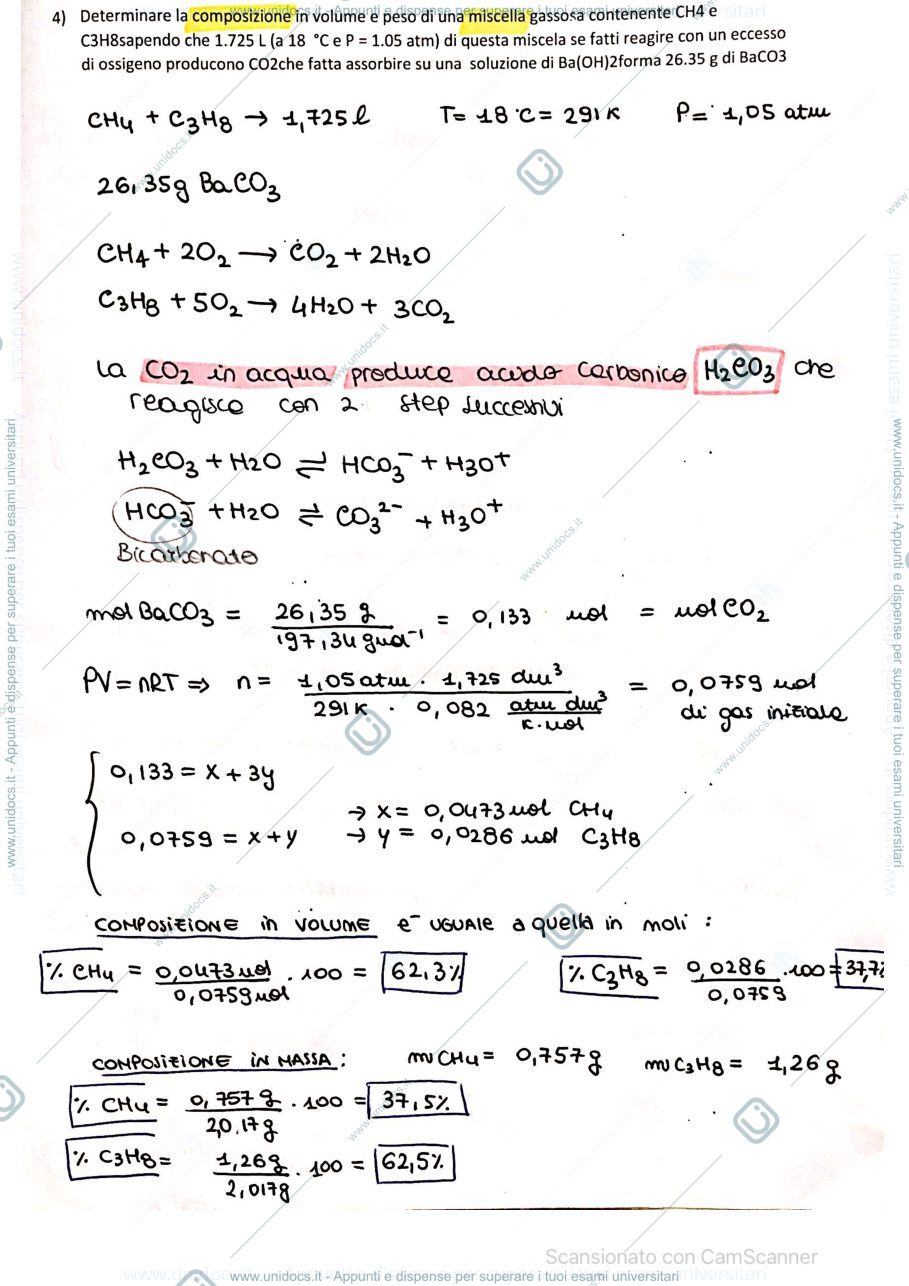 4) Determinare la composizione in volume e peso di una miscella gassosa contenente CH4 e
C3H8sapendo che 1.725 L (a 18 °C e P = 1.05 atm) di questa miscela se fatti reagire con un eccesso
di ossigeno producono CO2che fatta assorbire su una soluzione di Ba(OH)2forma 26.35 g di BaCO3
CH4 + C3H8 → 1,725 l T= 18 °C = 291 K P= 1,05 atm
26,35g BaCO3
CH4 + 2O2 → CO2 + 2H2O
C3H8 + 5O2 → 4H2O + 3CO2
La CO2 in acqua produce acido carbonico H2CO3 che
reagisce con 2 step successivi
H2CO3 + H2O ⇌ HCO3⁻ + H3O⁺
HCO3⁻ + H2O ⇌ CO3²⁻ + H3O⁺
Bicarbonato
mol BaCO3 = 26,35 g / 197,34 gmol⁻¹ = 0,133 mol = mol CO2
PV = nRT ⇒ n = 1,05 atm · 1,725 dm³ / 291 K · 0,082 atm dm³ / K·mol = 0,0759 mol
di gas iniziale
0,133 = x + 3y
→ x = 0,0473 mol CH4
0,0759 = x + y → y = 0,0286 mol C3H8
COMPOSIZIONE in VOLUME e⁻ UGUALE a quella in moli :
% CH4 = 0,0473 mol / 0,0759 mol · 100 = 62,3% % C3H8 = 0,0286 / 0,0759 · 100 = 37,7%
COMPOSIZIONE IN MASSA : m CH4 = 0,757g m C3H8 = 1,26 g
% CH4 = 0,757 g / 20,17 g · 100 = 37,5%
% C3H8 = 1,26g / 2,017g · 100 = 62,5%
Scansionato con CamScanner
www.unidocs.it - Appunti e dispense per superare i tuoi esami universitari
www.unidocs.it - Appunti e dispense per superare i tuoi esami universitari
www.unidocs.it - Appunti e dispense per superare i tuoi esami universitari